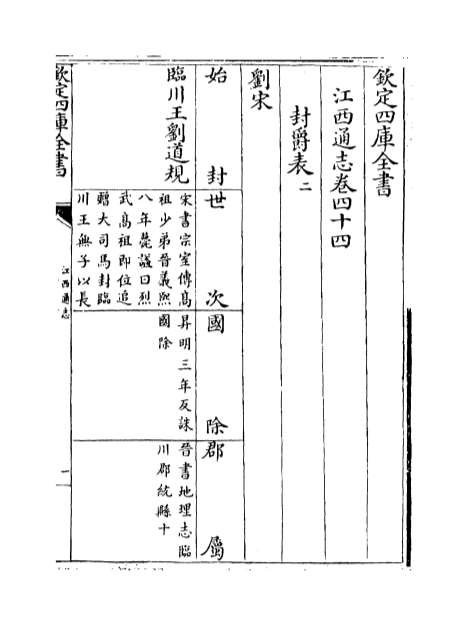 欽定四庫全書
江西通志卷四十四
封爵表二
劉宋
始封
世次
國除
郡屬
臨川王劉道規
宋書宗室傳高
祖少弟晉義熙
八年薨諡曰烈
武高祖即位追
贈大司馬封臨
川王無子以長
昇明三年反誅
國除
晉書地理志臨
川郡統縣十
欽定四庫全書
江西通志
一